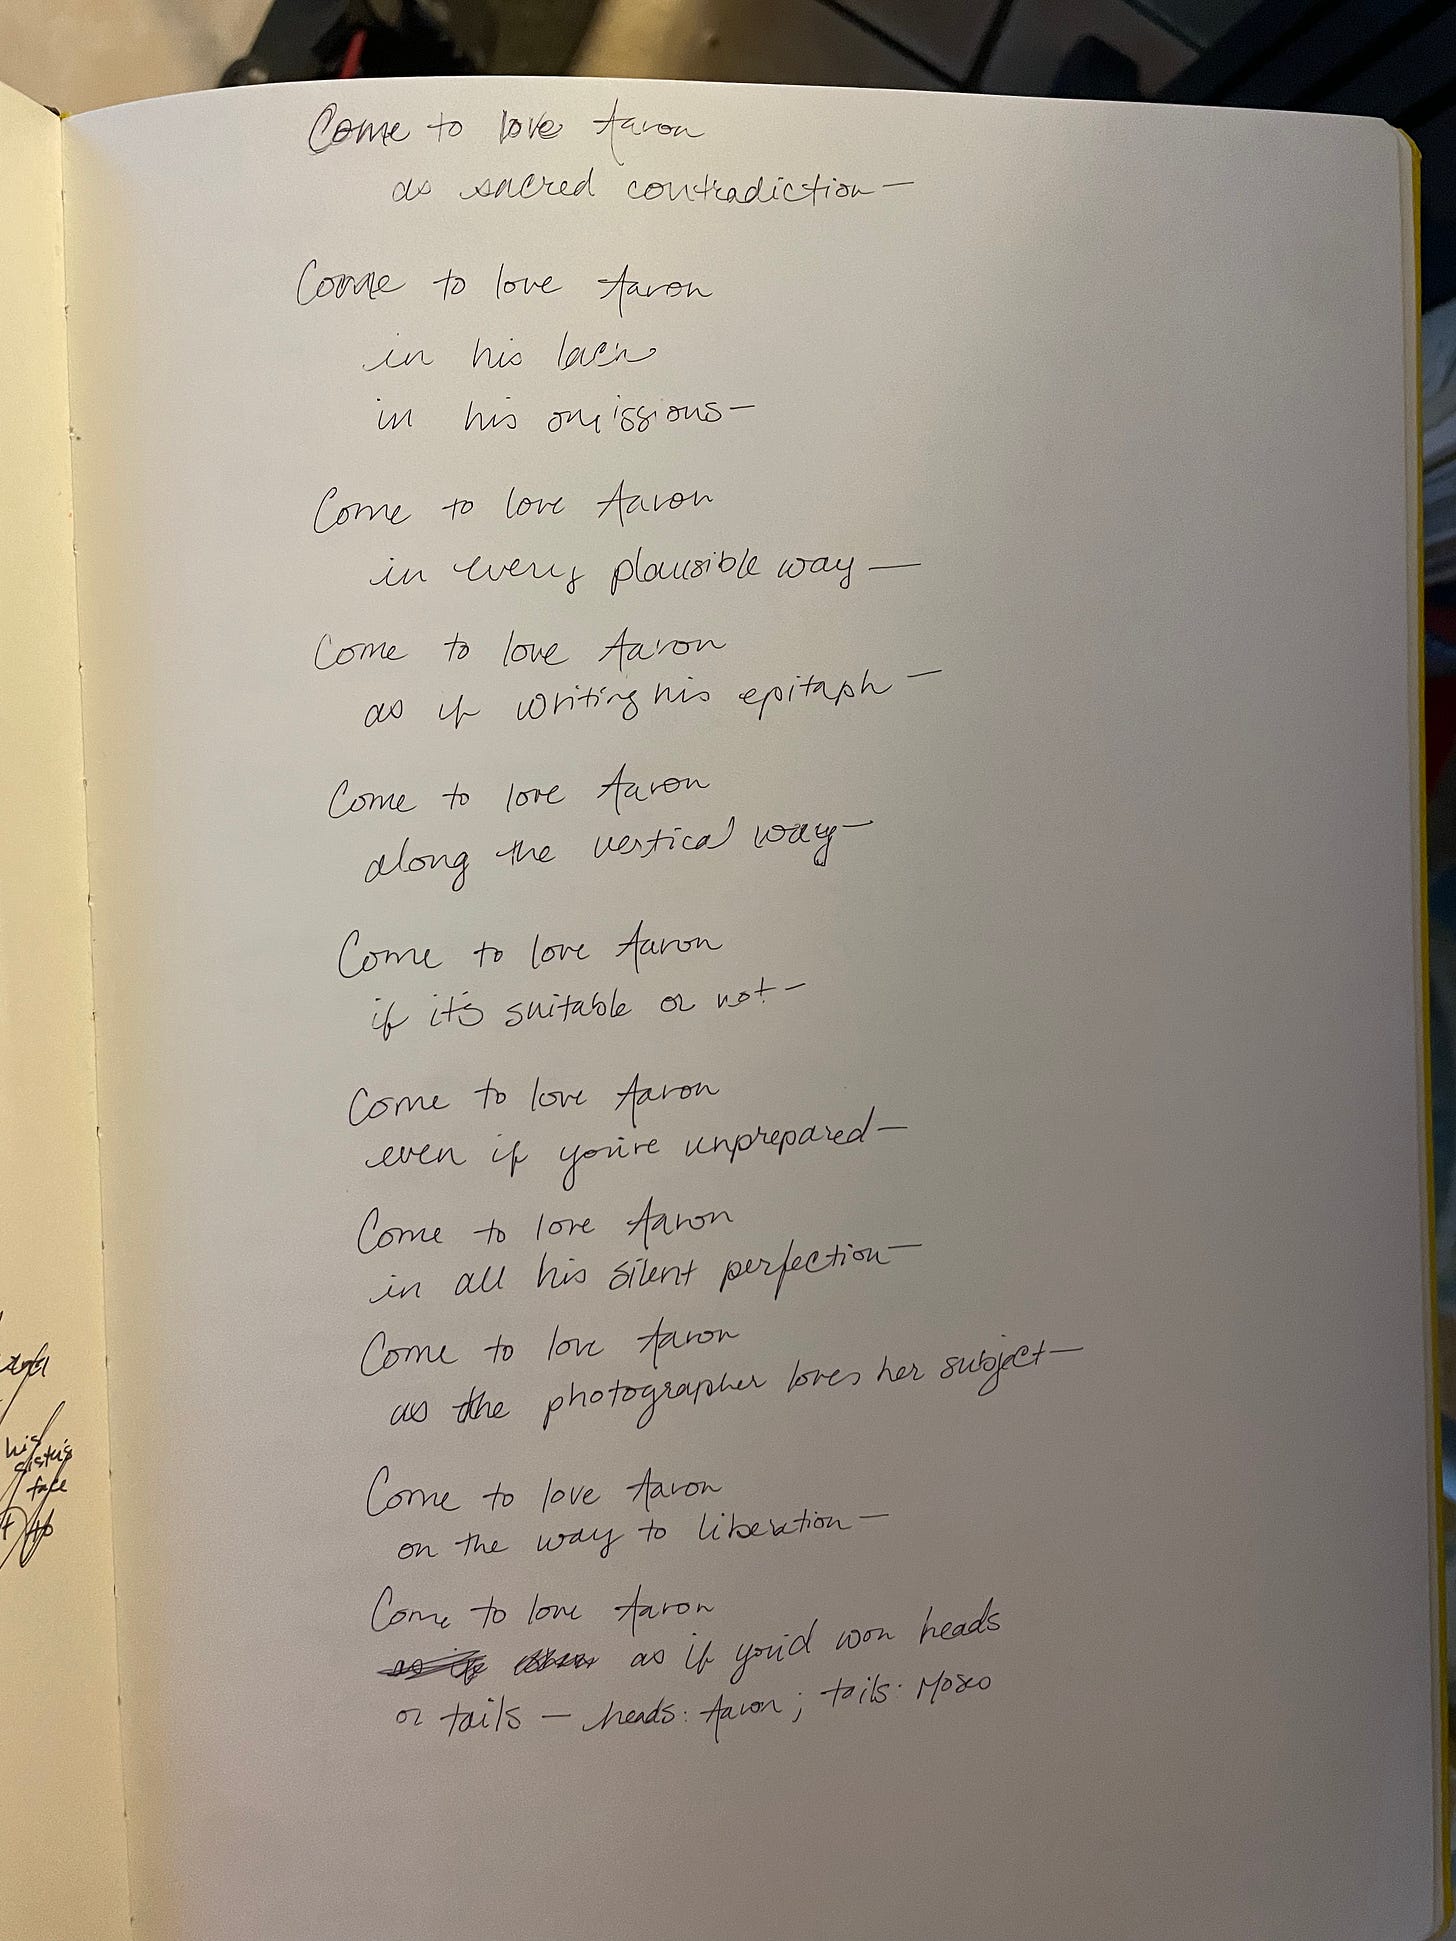 his
sister's
face
Come to love Aaron
as sacred contradiction—
Come to love Aaron
in his lack
in his omissions—
Come to love Aaron
in every plausible way—
Come to love Aaron
as if writing his epitaph—
Come to love Aaron
along the vertical way—
Come to love Aaron
if it's suitable or not—
Come to love Aaron
even if you're unprepared—
Come to love Aaron
in all his silent perfection—
Come to love Aaron
as the photographer loves her subject—
Come to love Aaron
on the way to liberation—
Come to love Aaron
as if you'd won heads
or tails — heads: Aaron; tails: Moses